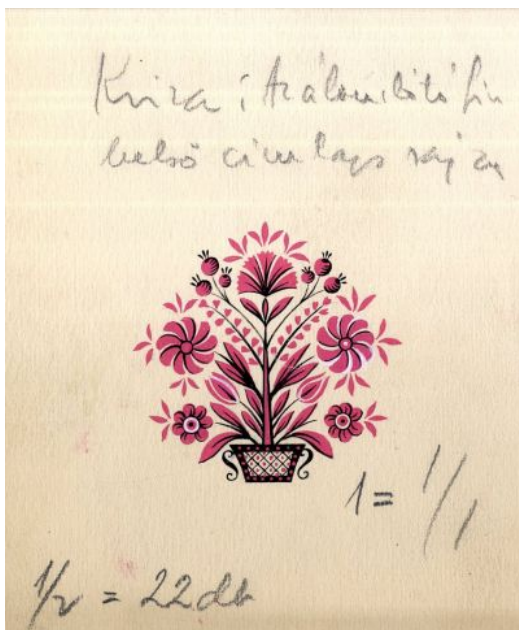 Kriza: Az álomlátó fiu
belső címlap rajza
1 = 1/1
1/2 = 22 db